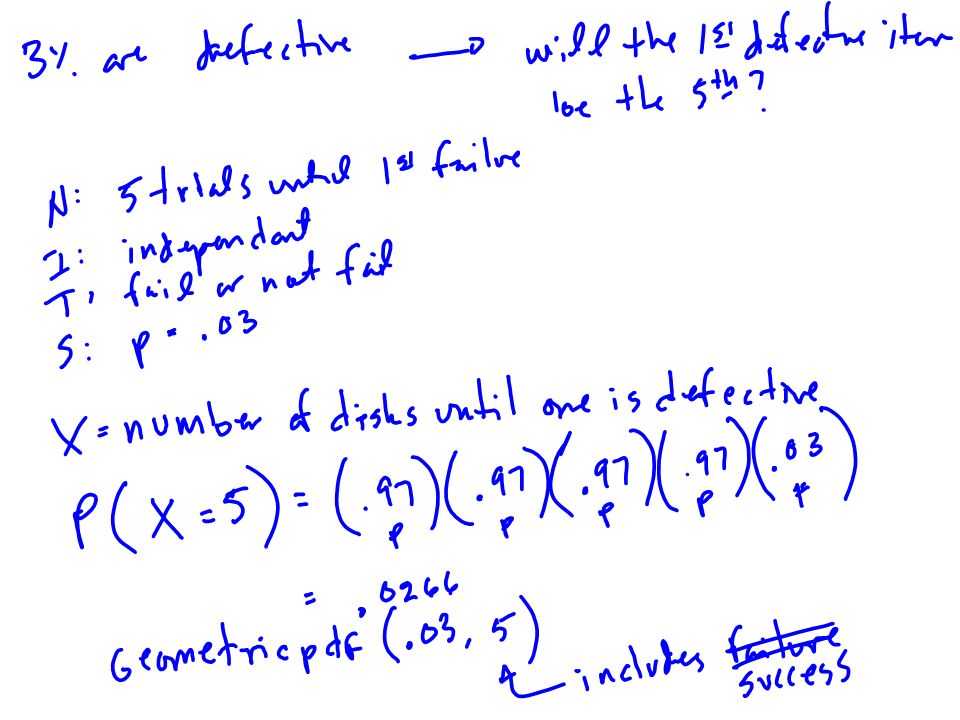 3%. are defective → will the 1st defective item
be the 5th?
N: 5 trials until 1st failure
I: independant
T, fail or not fail
S: p = .03
X = number of disks until one is defective
P(X=5) = (.97)(.97)(.97)(.97)(.03)
p p p p f
= .0266
Geometricpdf (.03, 5)
includes failure
success